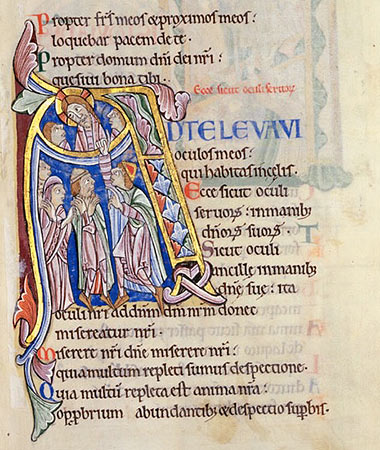 Propter fr̄s meos & proximos meos:
loquebar pacem de te.
Propter domum dn̄i dei nr̄i:
quesivi bona tibi.
Ecce sicut oculi servorꝝ
AD TE LEVAVI
oculos meos:
qui habitas in celis.
Ecce sicut oculi
servorꝝ: in manibꝫ
dn̄orꝝ suorꝝ.
Sicut oculi
ancille in manibꝫ
dn̄e sue: ita
oculi nr̄i ad dn̄m dm̄ nr̄m donec
misereatur nr̄i.
Miserere nr̄i dn̄e miserere nr̄i:
quia multum repleti sumus despectione.
Quia multū repleta est anima nr̄a:
opp̱brium abundantibꝫ & despectio sup̱bis.